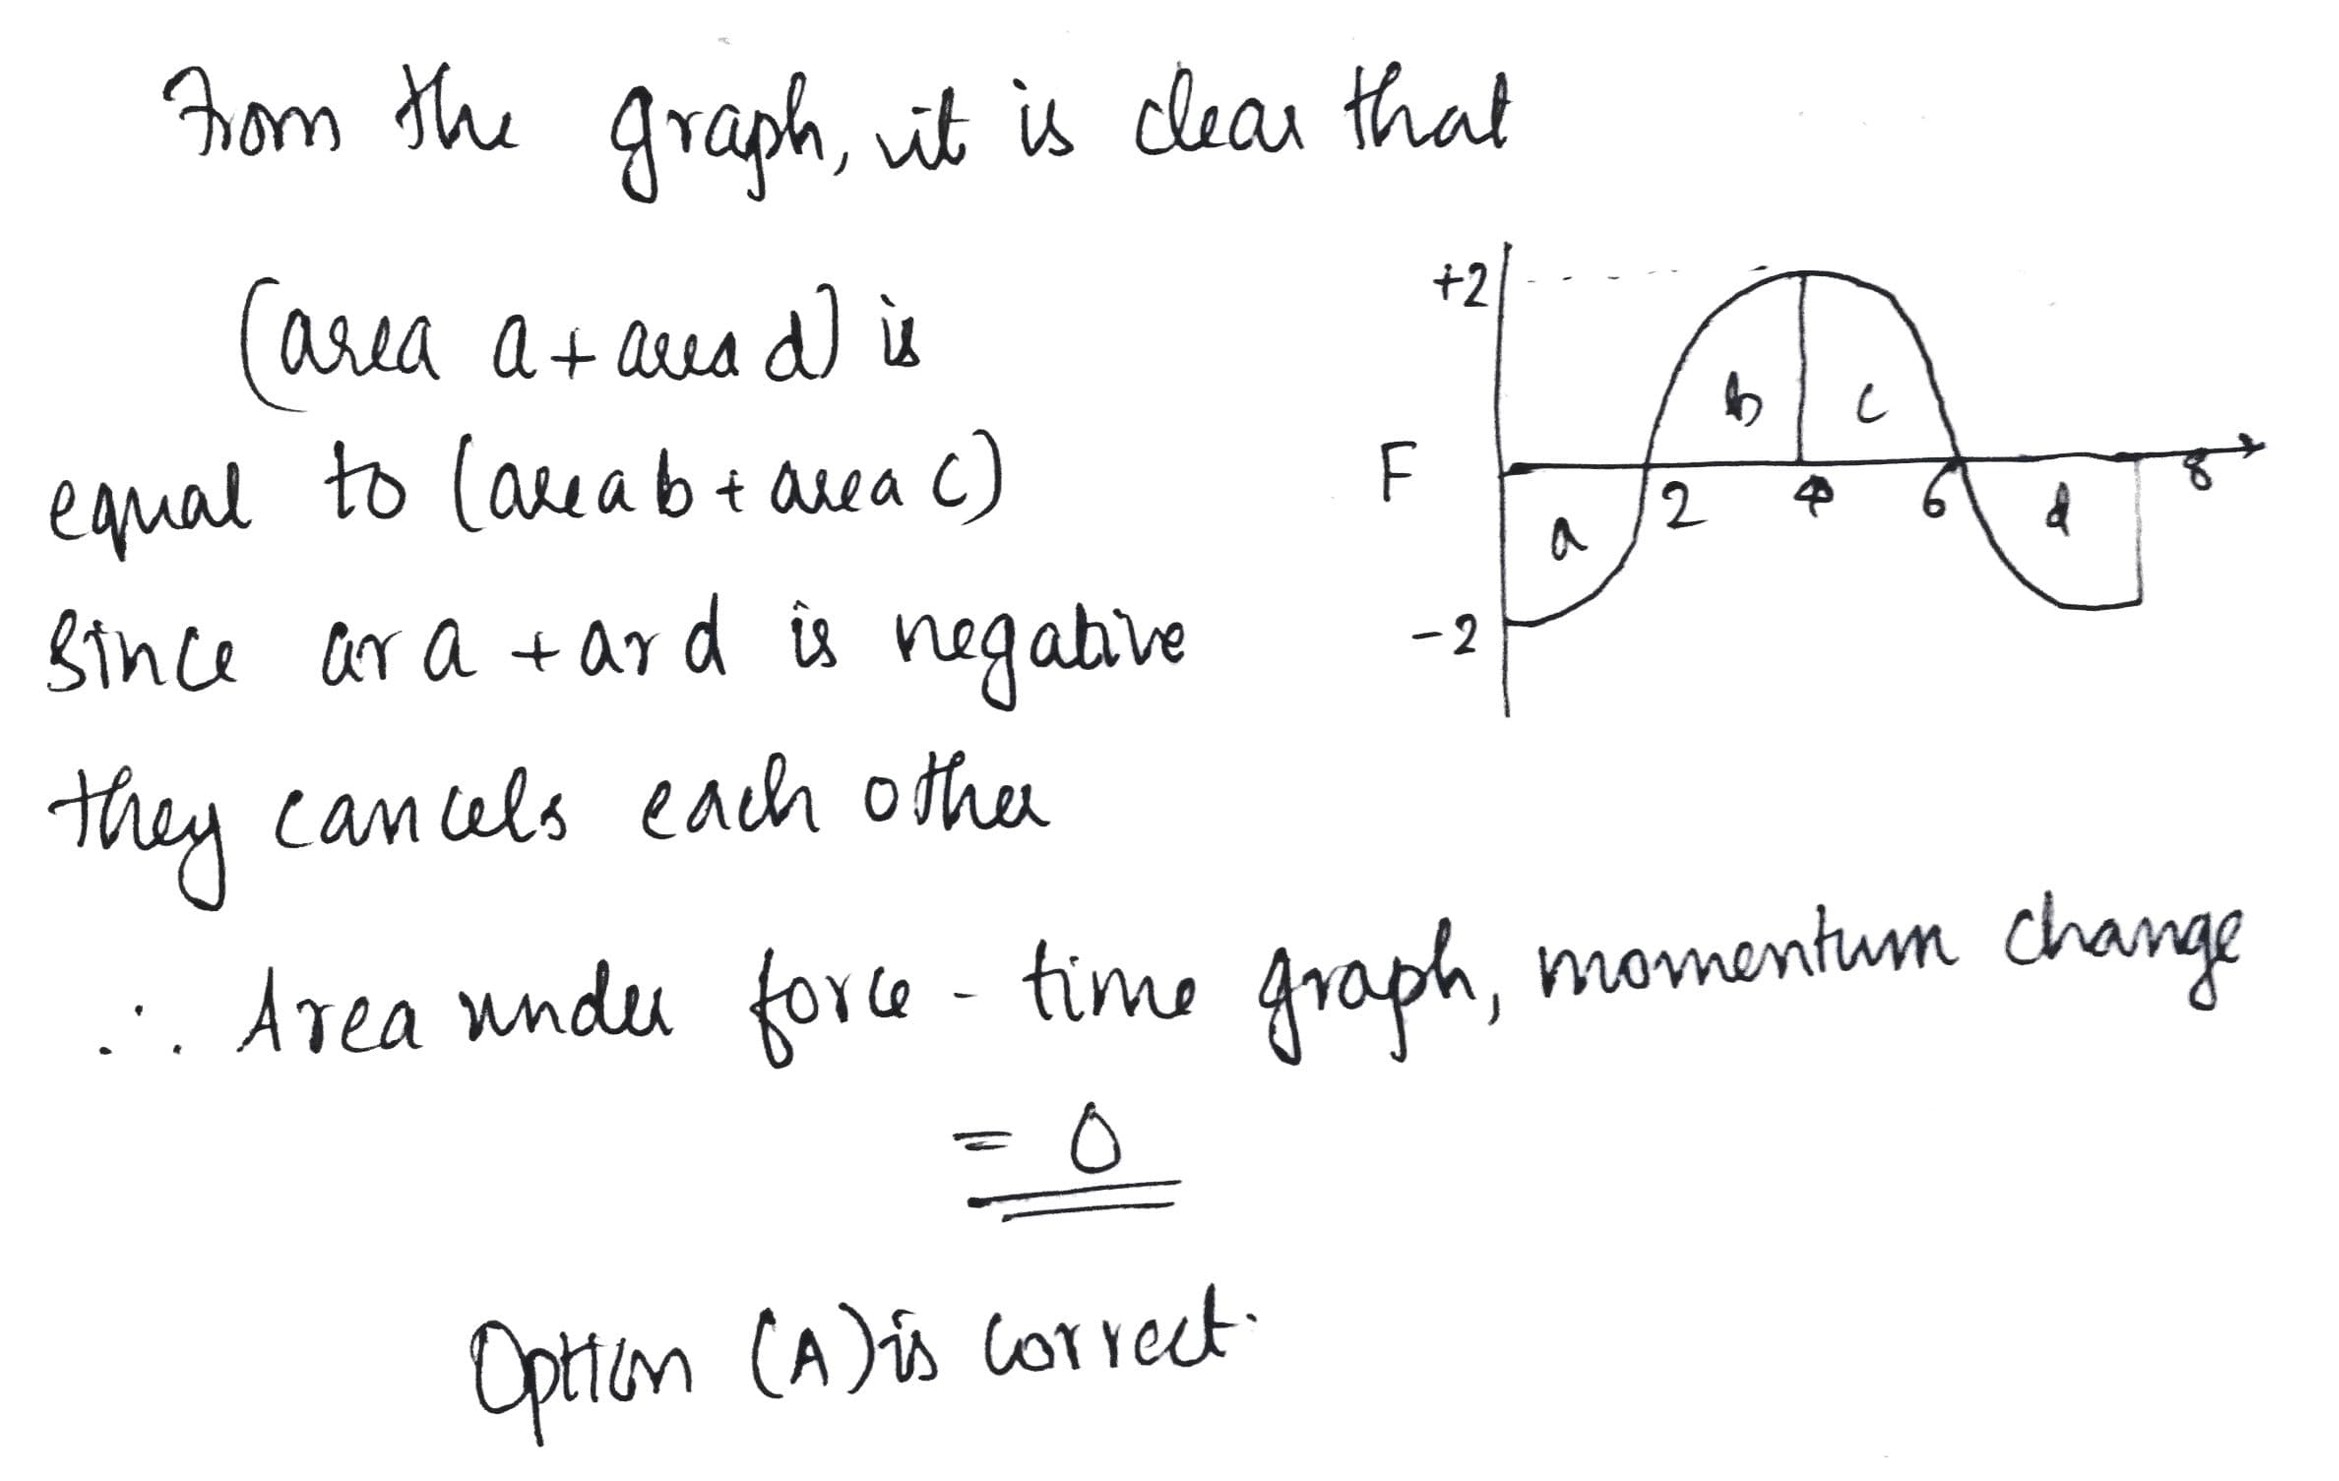 From the graph, it is clear that
(area a + area d) is
equal to (area b + area c)
since ar a + ar d is negative
they cancels each other
∴ Area under force - time graph, momentum change
= 0
Option (A) is correct.
+2
b c
F
2 4 6 8
a d
-2